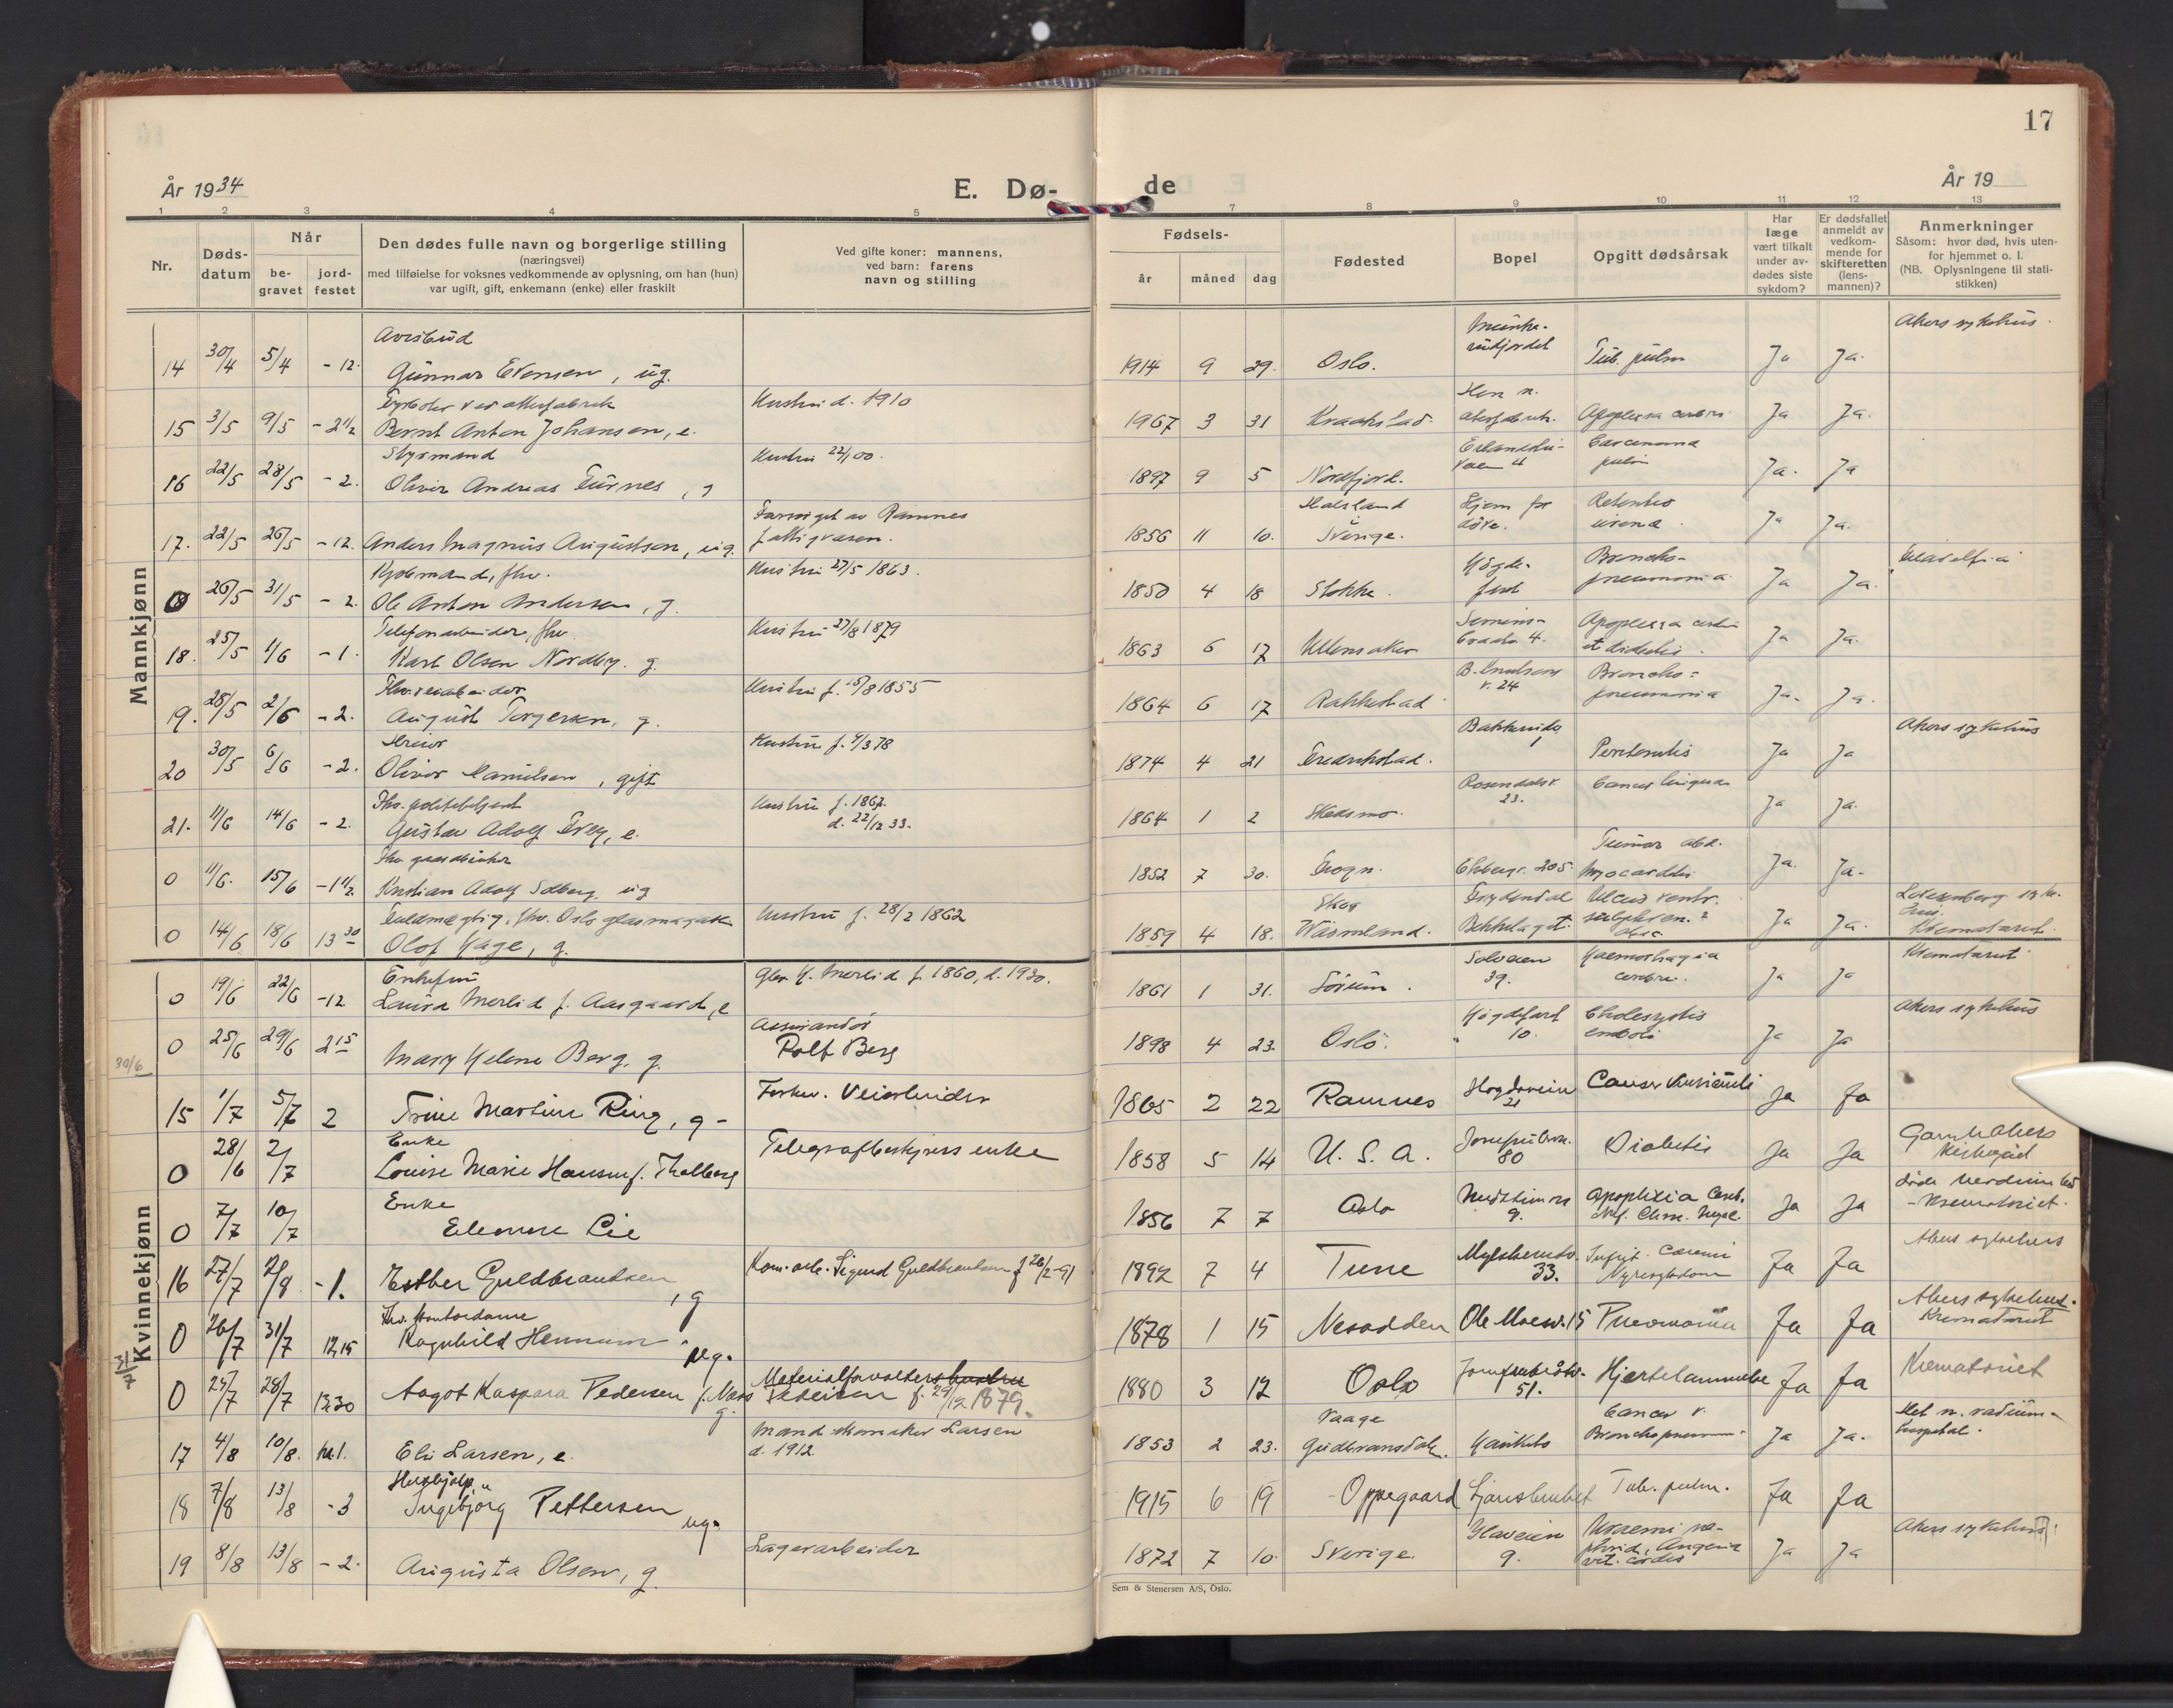 17
År 1934
E. Dø-
de
År 19
1 2 3 4 5 7 8 9 10 11 12 13
Nr.
Døds-
datum
Når
be-
gravet
jord-
festet
Den dødes fulle navn og borgerlige stilling
(næringsvei)
med tilføielse for voksnes vedkommende av oplysning, om han (hun)
var ugift, gift, enkemann (enke) eller fraskilt
Ved gifte koner: mannens,
ved barn: farens
navn og stilling
Fødsels-
år måned dag
Fødested
Bopel
Opgitt dødsårsak
Har
læge
vært tilkalt
under av-
dødes siste
sykdom?
Er dødsfallet
anmeldt av
vedkom-
mende for
skifteretten
(lens-
mannen)?
Anmerkninger
Såsom: hvor død, hvis uten-
for hjemmet o. l.
(NB. Oplysningene til stati-
stikken)
Mannkjønn
Akers sykehus
14 30/4 5/4 -12 Gunnar Evensen, ug. 1914 9 29. Oslo. Tub. pulm Ja Ja.
Hustru d. 1910
15 3/5 9/5 -2 1/2 Bernt Anton Johansen, e. 1967 3 31 Kraakstad. Apoplexia cerebri Ja Ja.
Styrmand Hustru 22/1 00. Carcenoma
16 22/5 28/5 -2. Oliver Andreas Furnes, g 1897 9 5 Nordfjord. Ja. Ja
av Ramnes Hjem for Retentio
17. 22/5 26/5 -12. Anders Magnus Augustsen, ug. fattigvæsen. 1856 11 10. Sverige. døve. urinæ. Ja Ja.
Kjøbmand, fhv. Hustru 27/5 1863. Broncho-
0 26/5 31/5 -2. Ole Anton Andersen, g. 1850 4 18 Stokke. pneumonia Ja Ja.
Telefonarbeider, fhv. Hustru 27/8 1879 Apoplexia cerebri
18. 25/5 1/6 -1. Karl Olsen Nordby. g. 1863 6 17 Ullensaker Ja Ja.
Fhv. veiarbeider Hustru f. 15/8 1855 Broncho-
19. 28/5 2/6 -2. August Torgersen, g. 1864 6 17 Rakkestad v. 24 pneumonia Ja. Ja.
Hustru f. 4/3 78 Akers sykehus
20 30/5 6/6 -2. Oliver Danielsen, gift 1874 4 21 Fredrikstad. Peritonitis Ja Ja
Fhv. politibetjent Hustru f. 1867. Rosendalsv. Cancer linguæ
d. 22/12 33. 23.
21. 11/6 14/6 -2. Gustav Adolf Frey, e. 1864 1 2 Skedsmo. Ja Ja.
Tumor abd.
0 11/6. 15/6 -1 1/2 Kristian Adolf Solberg ug 1852 7 30. Frogn. Ekebergv. 205. Myocarditis Ja. Ja.
Fuldmægtig, fhv. Oslo glasmagasin Hustru f. 28/2 1862 Ulcus ventr.
0 14/6 18/6 13 30 Olof Hage, g. 1859 4 18. Wärmland. Bekkelaget. Ja Ja. Krematoriet.
Enkefru f. 1860, d. 1930. Solveien Haemorhagia Krematoriet
0 19/6 22/6 -12 Laura Merlid f. Aasgaard, e 1861 1 31. Sørum. 39. cerebri. Ja Ja
Kvinnekjønn
Assurandør Akers sykehus
0 25/6 29/6 2 15 Mary Helene Berg. g. Rolf Berg 1898 4 23. Oslo. 10. Ja Ja
30/6
Forhv. Veiarbeider
15 1/7 5/7 2 Trine Martine Ring, g - 1865 2 22 Ramnes 21 Ja Ja
Enke
0 28/6 2/7 Louise Marie Hansen f. Thalberg Telegrafbestyrers enke 1858 5 14 U. S. A. 80 Diabetis Ja Ja
Enke
0 7/7 10/7 Eleonore Lie 1856 7 7 Oslo 9. Apoplexia Cereb. Ja Ja Krematoriet.
Akers sykehus
16 27/7 2/8 -1. Esther Guldbrandsen, g Kom. arb. Sigurd Guldbrandsen f 26/2-91 1892 7 4 Tune 33. Nyresykdom Ja Ja
Fhv. Kontordame Akers sykehus.
0 26/7 31/7 12,15 Ragnhild Hennum ug. 1878 1 15 Nesodden Ole Moesv. 15 Pneumonia Ja Ja Krematoriet
31/7
Materialforvalters hustru
0 25/7 28/7 13,30 Aagot Kaspara Pedersen f. Næss g. Pedersen f. 29/12 1879. 1880 3 12 Oslo 51. Hjertelammelse Ja Ja Krematoriet
Mand skomaker Larsen Vaage Cancer v.
17 4/8 10/8. kl. 1. Eli Larsen, e. d. 1912 1853 2 23. Gudbransdalen. Ja Ja. hospital.
Hushjelp
18 7/8 13/8 -3 Ingebjørg Pettersen ug. 1915 6 19 Oppegaard Tub. pulm. Ja Ja
Lagerarbeider Akers sykehus
19 8/8 13/8 -2. Augusta Olsen, g. 1872 7 10. Sverige. 9. Ja Ja
Sem & Stenersen A/S, Oslo.